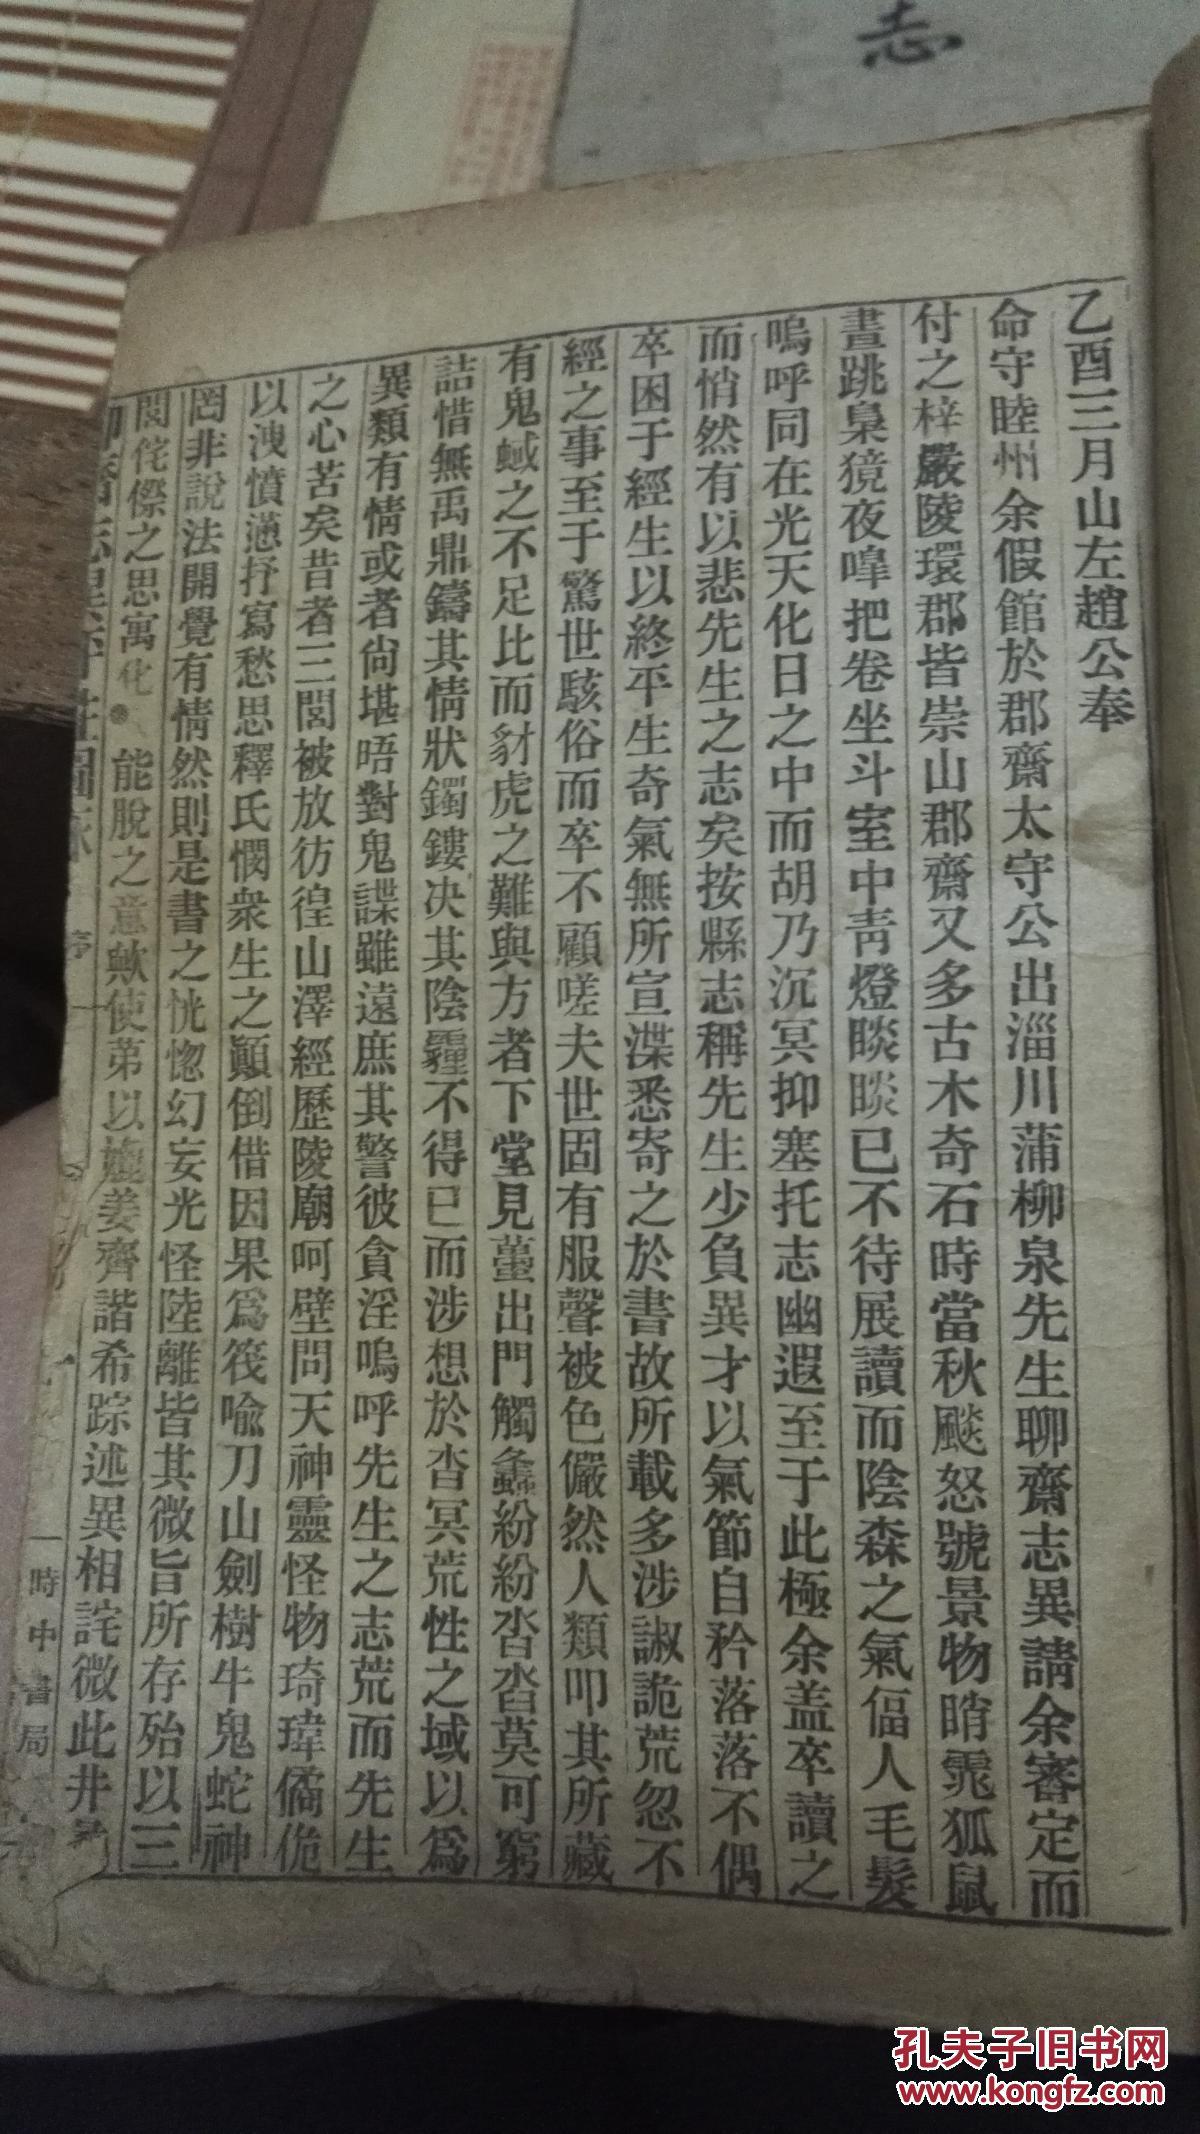 志
乙酉三月山左趙公奉
命守睦州余假館於郡齋太守公出淄川蒲柳泉先生聊齋志異請余審定而
付之梓嚴陵環郡皆崇山郡齋又多古木奇石時當秋飈怒號景物睄窕狐鼠
晝跳梟獍夜嘷把卷坐斗室中靑燈睒睒已不待展讀而陰森之氣偪人毛髮
嗚呼同在光天化日之中而胡乃沉冥抑塞托志幽遐至于此極余盖卒讀之
而悄然有以悲先生之志矣按縣志稱先生少負異才以氣節自矜落落不偶
卒困于經生以終平生奇氣無所宣渫悉寄之於書故所載多涉諔詭荒忽不
經之事至于驚世駭俗而卒不顧嗟夫世固有服聲被色儼然人類叩其所藏
有鬼蜮之不足比而豺虎之難與方者下堂見蠆出門觸蠭紛紛沓沓莫可窮
詰惜無禹鼎鑄其情狀鐲鏤决其陰霾不得已而涉想於杳冥荒怪之域以爲
異類有情或者尙堪晤對鬼諜雖遠庶其警彼貪淫嗚呼先生之志荒而先生
之心苦矣昔者三閭被放彷徨山澤經歷陵廟呵壁問天神靈怪物琦瑋僪佹
以洩憤懣抒寫愁思釋氏憫衆生之顚倒借因果爲筏喩刀山劍樹牛鬼蛇神
罔非說法開覺有情然則是書之恍惚幻妄光怪陸離皆其微旨所存殆以三
閭侘傺之思寓化 能脫之意歟使第以媲姜齊諧希踪述異相詫微此井
序
一
時中書局
孔夫子旧书网
www.kongfz.com